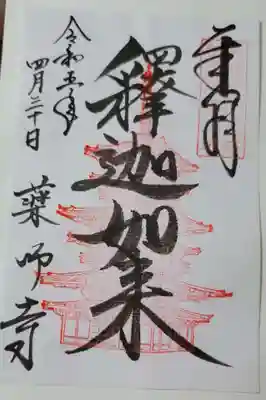 奉拝
釋迦如来
令和五年
四月三十日
薬師寺